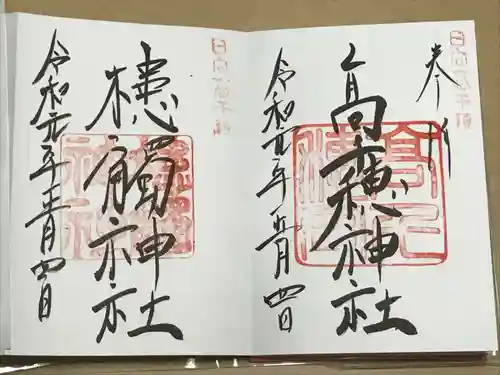 奉拝
日向高千穂
高千穂神社
令和元年五月四日
日向高千穂
槵觸神社
令和元年五月四日